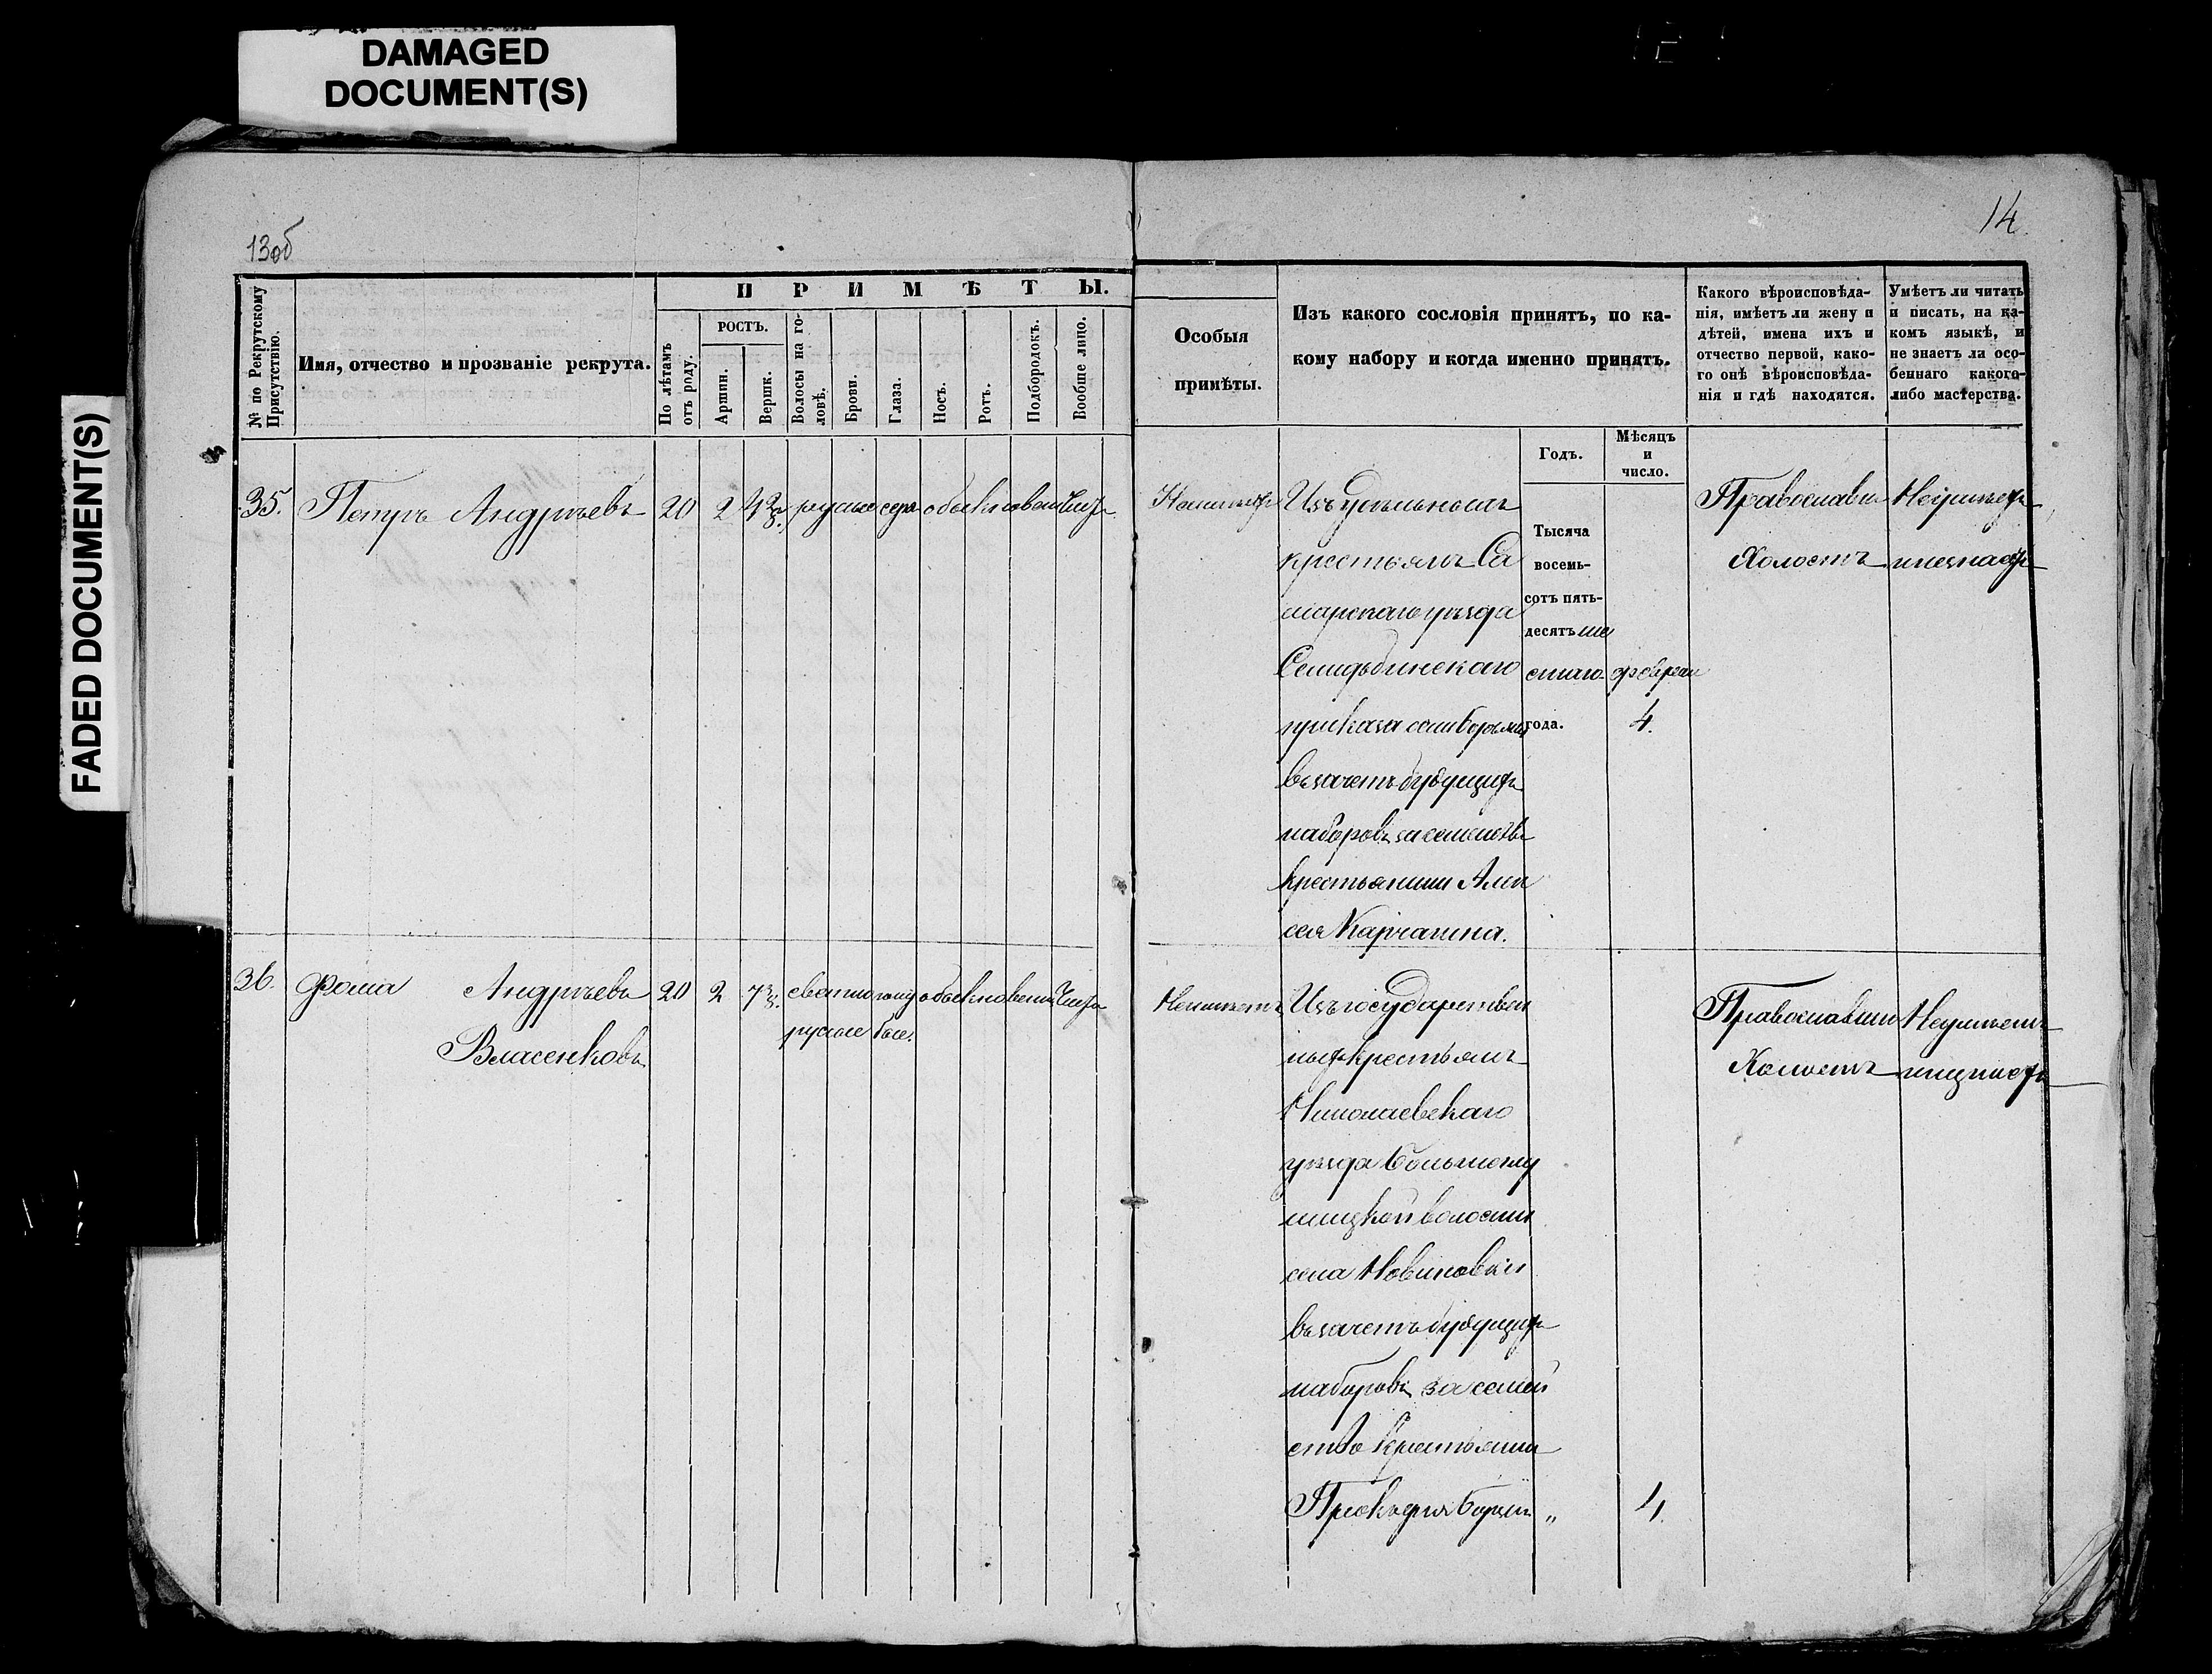 DAMAGED
DOCUMENT(S)
FADED DOCUMENT(S)
13об
14
№ по Рекрутскому
Присутствію.
Имя, отчество и прозваніе рекрута.
ПРИМѢТЫ.
По лѣтамъ
отъ роду.
РОСТЪ.
Аршин.
Вершк.
Волосы на го-
ловѣ.
Брови.
Глаза.
Носъ.
Ротъ.
Подбородокъ.
Вообще лицо.
Особыя
примѣты.
Изъ какого сословія принятъ, по ка-
кому набору и когда именно принятъ.
Годъ.
Мѣсяцъ
и
число.
Какого вѣроисповѣда-
нія, имѣетъ ли жену и
дѣтей, имена ихъ и
отчество первой, како-
го онѣ вѣроисповѣда-
нія и гдѣ находятся.
Умѣетъ ли читать
и писать, на ка-
комъ языкѣ, и
не знаетъ ли осо-
беннаго какого-
либо мастерства.
35.
Петръ Андреевъ
20
2
русые
серы
обыкновен
Чист
Изъ удельныхъ
крестьянъ Са
марскаго уезда
приказа
въ зачетъ будущихъ
наборовъ за семейство
крестьянина Але
сея Карчагина.
Тысяча
восемь-
сотъ пять-
десятъ ше
стаго
года.
февраля
4.
Православн
Холостъ
Неумеетъ
и незнаетъ
36.
Фома Андреевъ
Власенковъ
20
2
светло
русые
голу
бые.
обыкновенн
Чисто
Неимеетъ
Изъ государствен
ныхъ крестьянъ
Николаевскаго
уезда
волости
села
въ зачетъ будущихъ
наборовъ за семей
ство крестьянина
„
4.
Православный
Холостъ
Неумеетъ